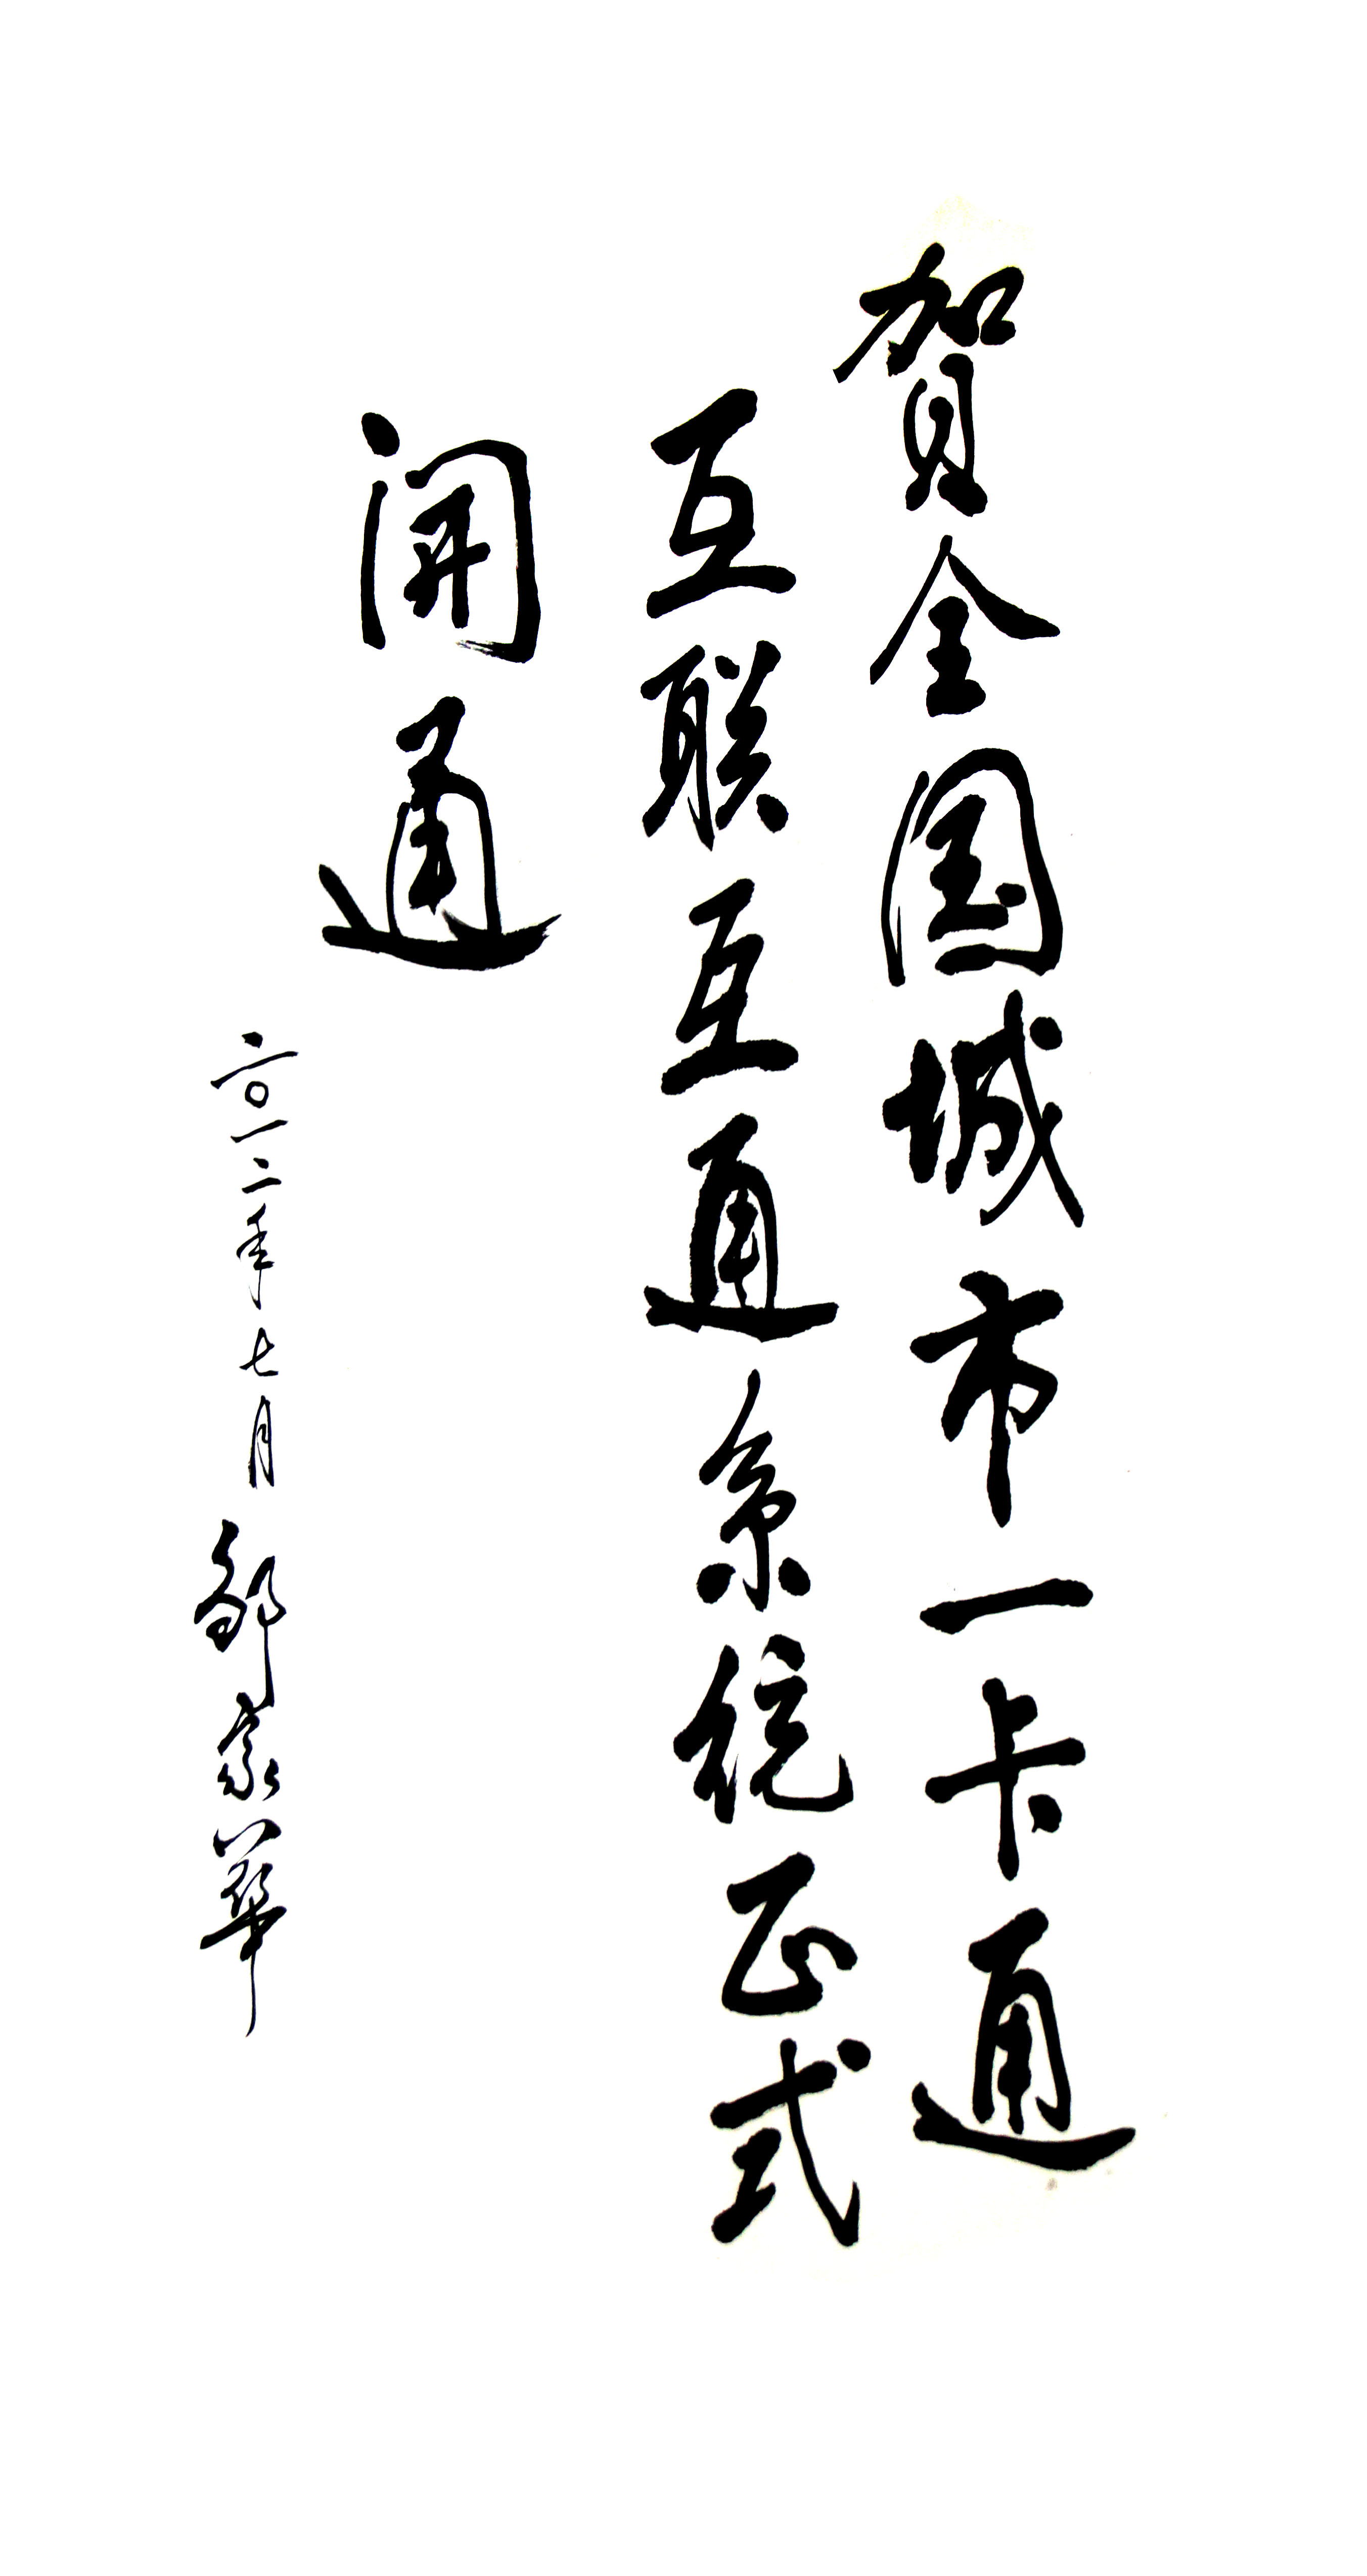 賀全国城市一卡通
互联互通系统正式
開通
二〇一二年七月 邹家華